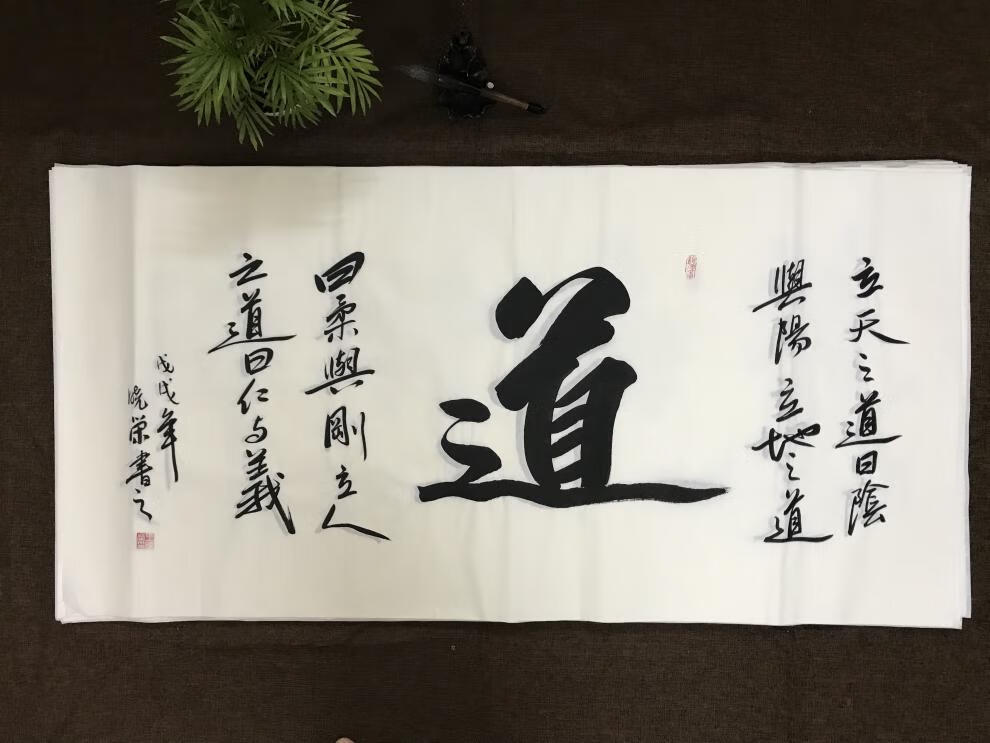 立天之道曰陰
與陽立地之道
道
曰柔與剛立人
之道曰仁与義
戊戌年
曉栄書之